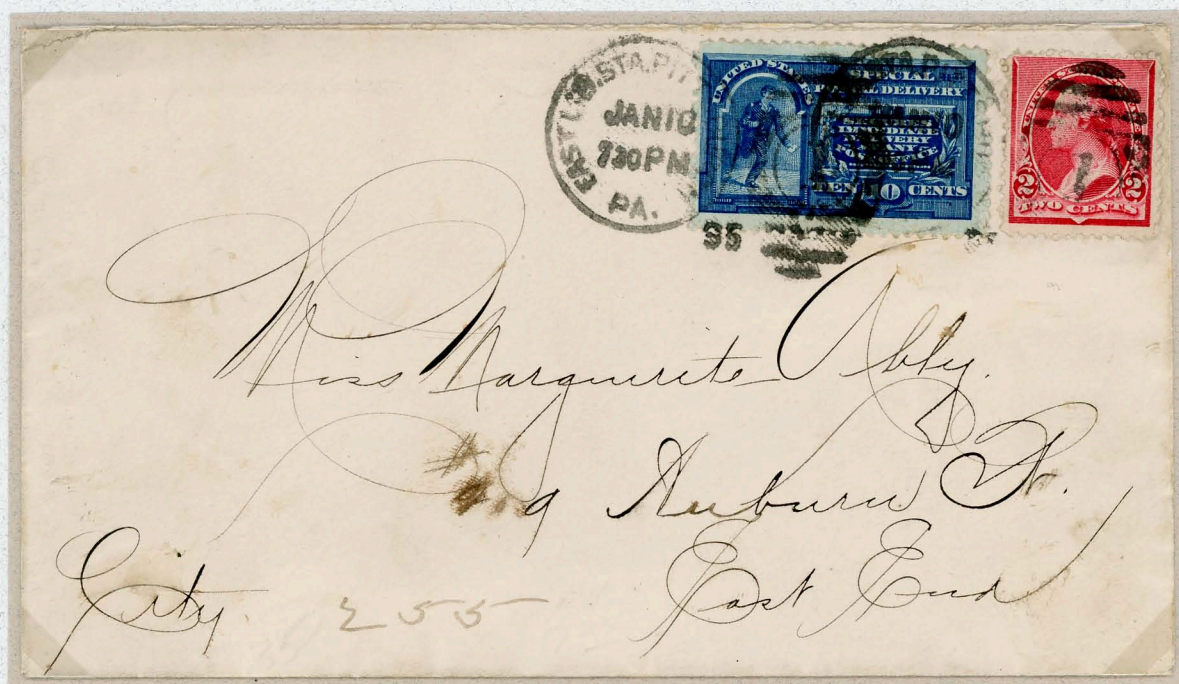 EAST LIB STA. PITT
JAN 10
730 PM
PA.
95
UNITED STATES
SPECIAL
POSTAL DELIVERY
SECURES
IMMEDIATE
DELIVERY
AT ANY
POST OFFICE
TEN 10 CENTS
2 2
TWO CENTS
Miss Marguerite Abby.
# 9 Auburn St.
East End
City.
255